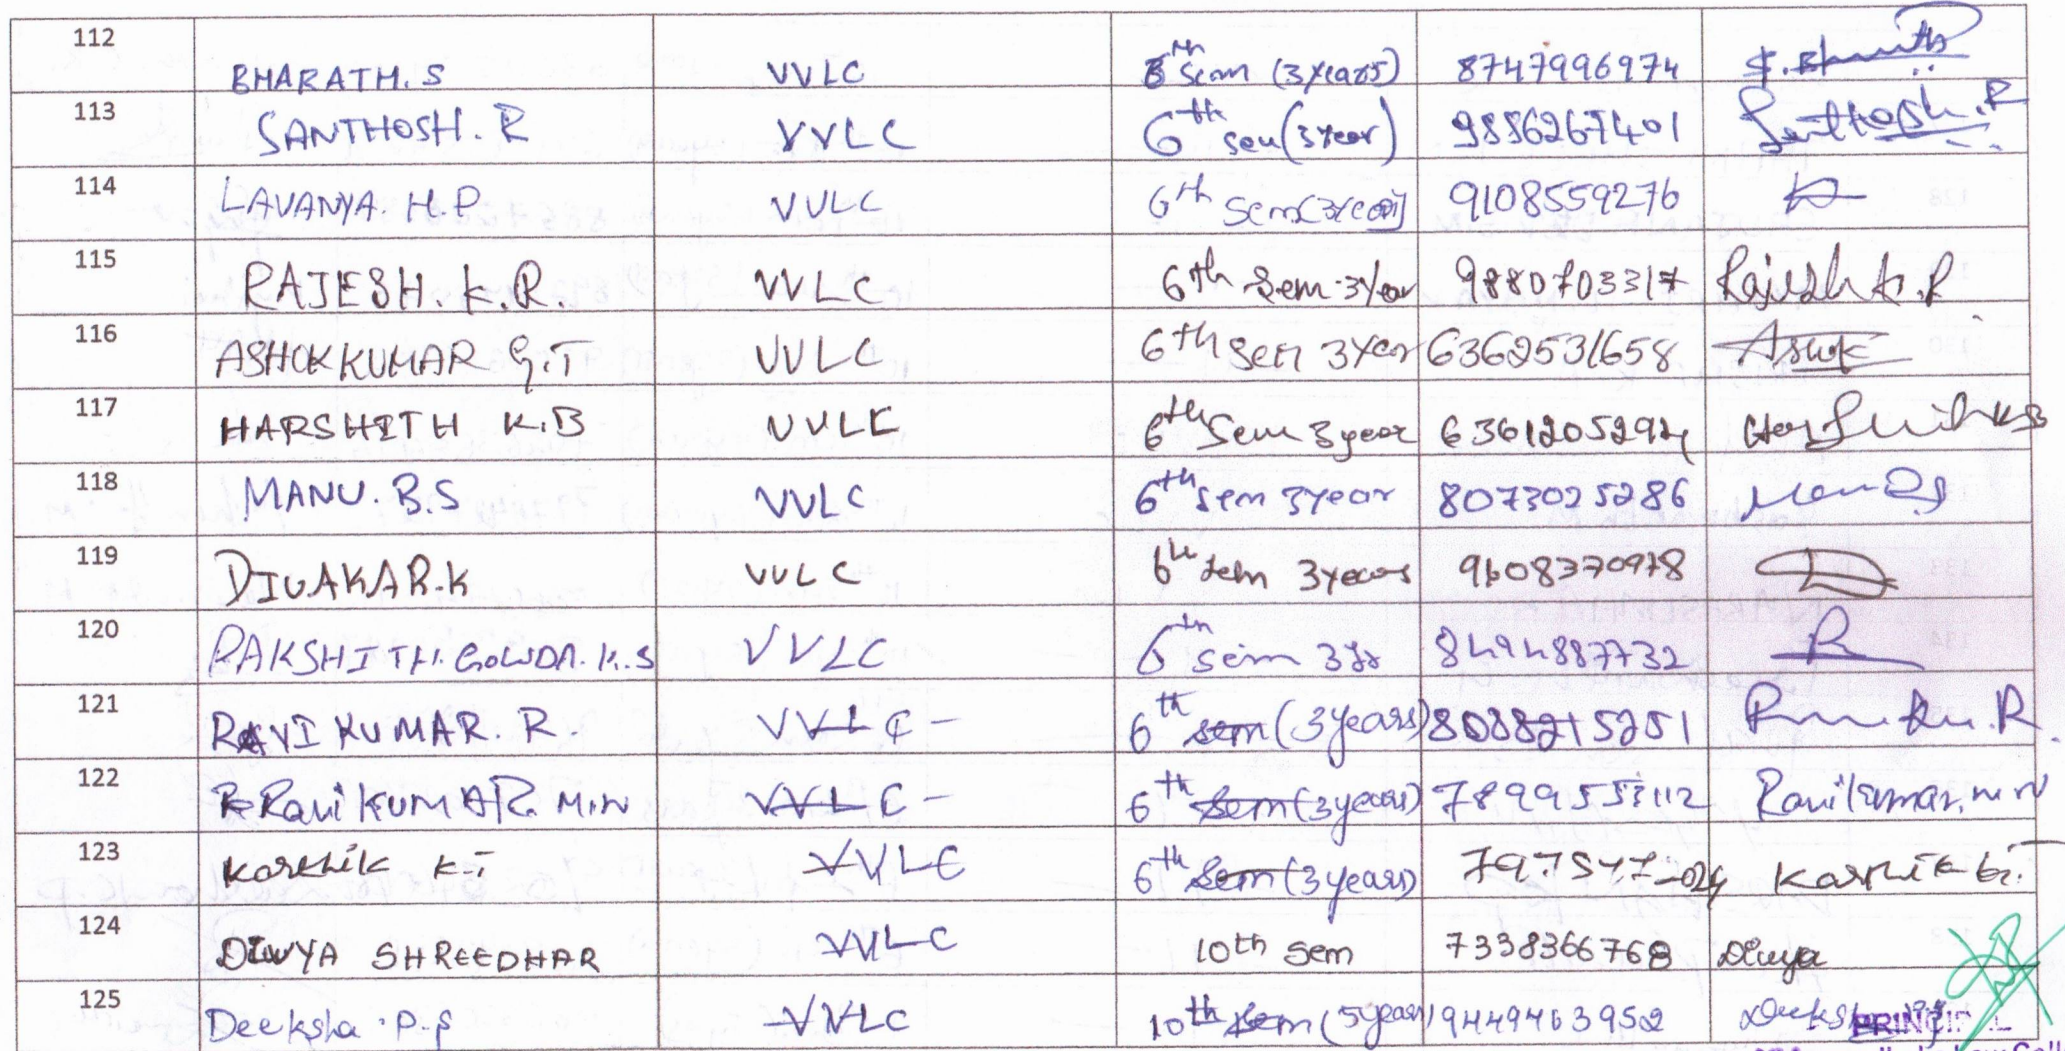 112 BHARATH.S VVLC 6th sem (3 years) 8747996974
113 SANTHOSH.R VVLC 6th sem (3 year) 9886267401 Santhosh.R
114 LAVANYA.H.P VVLC 6th Sem (3 year) 9108559276
115 RAJESH.K.R. VVLC 6th Sem-3Year 9880703317 Rajesh K.R
116 ASHOKKUMAR G.T VVLC 6th Sem 3Year 6362531658 Ashok
117 HARSHITH K.B VVLC 6th Sem 3year 6361205294 Harshith KB
118 MANU.B.S VVLC 6th Sem 3Year 8073025286
119 DIVAKAR.K VVLC 6th sem 3years 9608370978
120 RAKSHITH.GOWDA.K.S VVLC 6th sem 3Yr 8494887732 R
121 RAVI KUMAR.R. VVLC - 6th sem (3years) 8088215251
122 Ravi KUMAR.M.N VVLC - 6th Sem (3years) 7899553112 Ravikumar.M.N
123 Karthik VVLC 6th Sem (3years)
124 DIVYA SHREEDHAR VVLC 10th Sem 7338366768 Divya
125 Deeksha.P.S VVLC 10th Sem (5year) 9449463952 Deeksha
PRINCIPAL